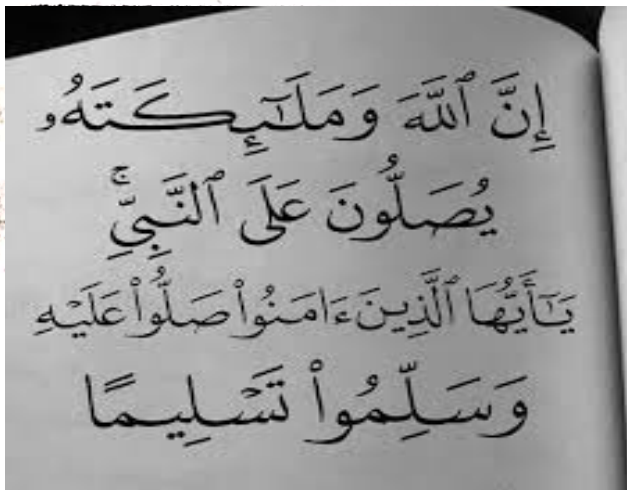 إِنَّ ٱللَّهَ وَمَلَـٰٓئِكَتَهُۥ
يُصَلُّونَ عَلَى ٱلنَّبِىِّۚ
يَـٰٓأَيُّهَا ٱلَّذِينَ ءَامَنُوا۟ صَلُّوا۟ عَلَيْهِ
وَسَلِّمُوا۟ تَسْلِيمًا